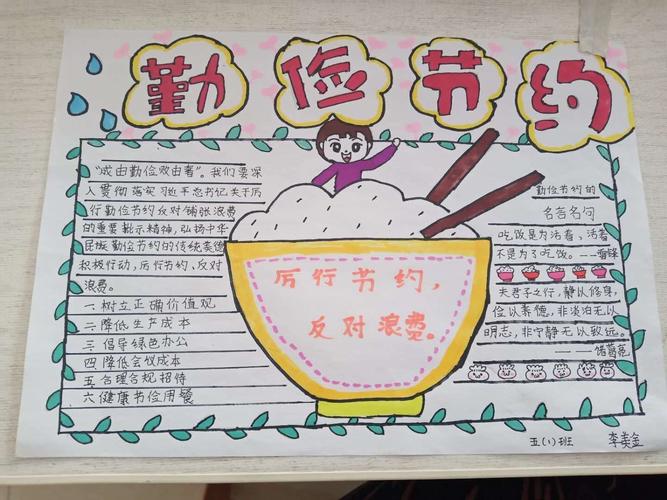 勤俭节约
"成由勤俭败由奢"。我们要深
入贯彻落实习近平总书记关于厉
行勤俭节约反对铺张浪费
的重要批示精神，弘扬中华
民族勤俭节约的传统美德
积极行动，厉行节约、反对
浪费。
一 树立正确价值观
二 降低生产成本
三 倡导绿色办公
四 降低会议成本
五 合理合规招待
六 健康节俭用餐
厉行节约，
反对浪费。
勤俭节约的
名言名句
吃饭是为活着、活着
不是为了吃饭。——雷锋
夫君子之行，静以修身，
俭以养德，非淡泊无以
明志，非宁静无以致远。
——诸葛亮
五(1)班
李美金